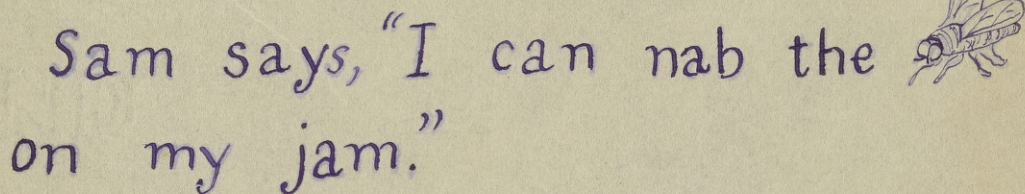 Sam says, “I can nab the
on my jam.”